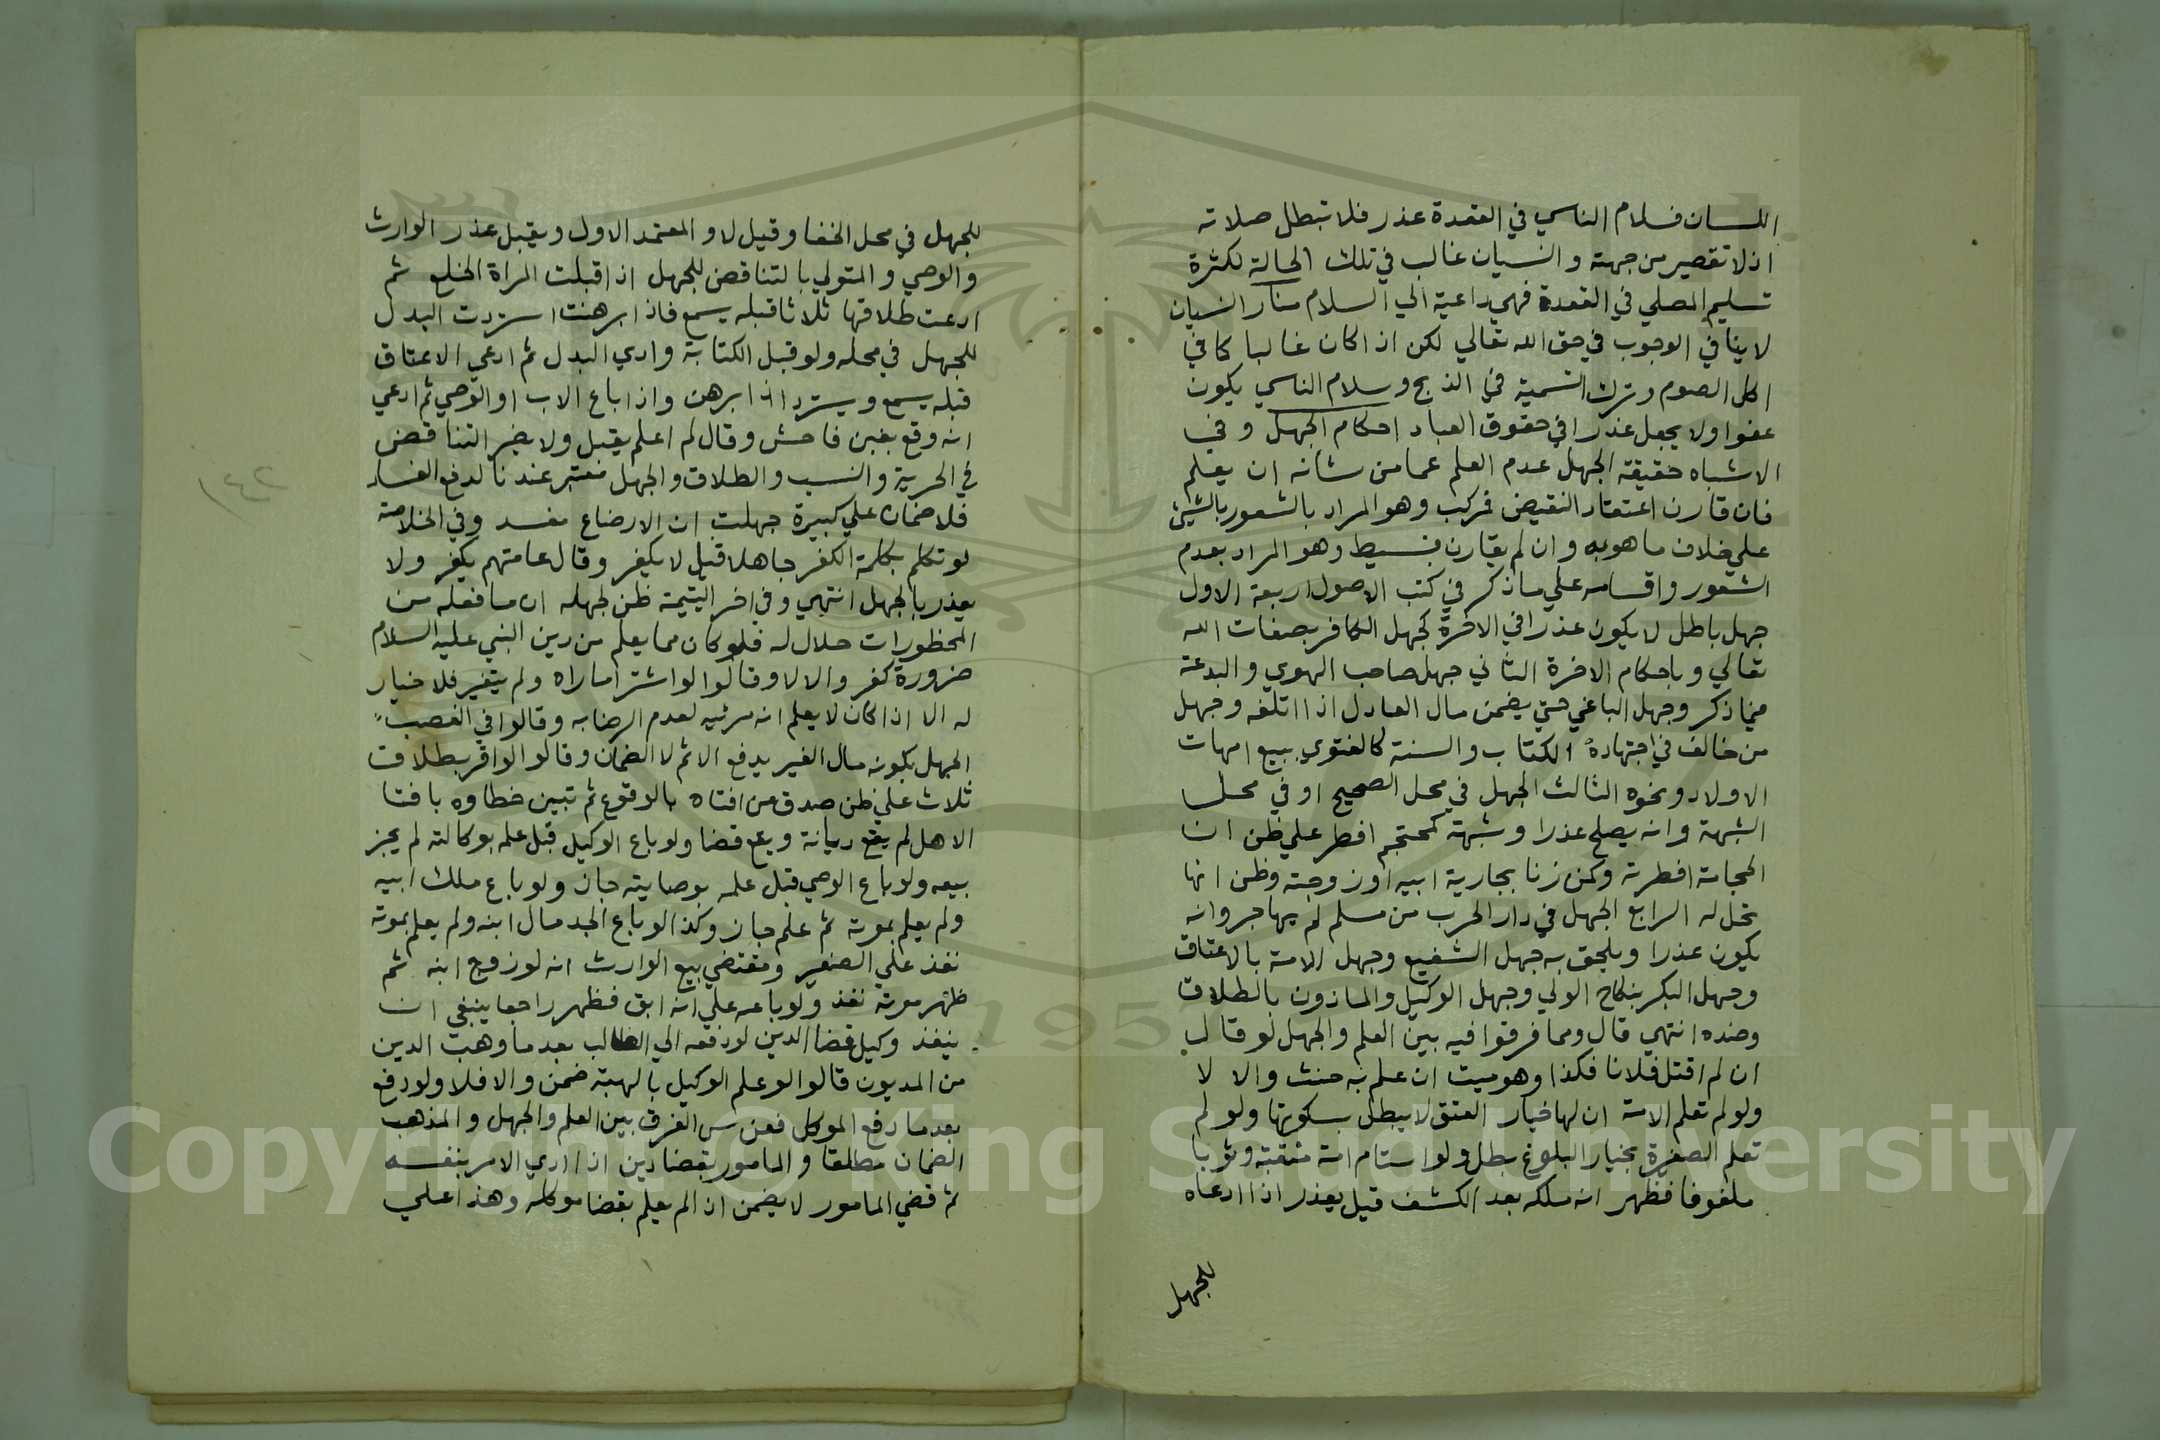 اللسان فسلام الناسي في القعدة عذر فلا تبطل صلاته
اذ لا تقصير من جهته والنسيان غالب في تلك الحالة لكثرة
تسليم المصلي في القعدة فهي داعية الي السلام منار النسيان
لا ينافي الوجوب في حق الله تعالي لكن اذا كان غالبا كما في
اكل الصوم وترك التسمية في الذبح وسلام الناسي يكون
عفوا ولا يجعل عذرا في حقوق العباد احكام الجهل وفي
الاشباه حقيقة الجهل عدم العلم عما من شانه ان يعلم
فان قارن اعتقاد النقيض فمركب وهو المراد بالشعور بالشيئ
علي خلاف ما هو به وان لم يقارن فبسيط وهو المراد بعدم
الشعور واقسامه علي ما ذكر في كتب الاصول اربعة الاول
جهل باطل لا يكون عذرا في الاخرة كجهل الكافر بصفات الله
تعالي وباحكام الاخرة الثاني جهل صاحب الهوي والبدعة
فيما ذكر وجهل الباغي حتي يضمن مال العادل اذا اتلفه وجهل
من خالف في اجتهاده الكتاب والسنة كالفتوي ببيع امهات
الاولاد ونحوه الثالث الجهل في محل الصحيح او في محل
الشبهة وانه يصلح عذرا وشبهة كمحتجم افطر علي ظن ان
الحجامة افطرته وكمن زنا بجارية ابيه او زوجته وظن انها
تحل له الرابع الجهل في دار الحرب من مسلم لم يهاجر وانه
يكون عذرا ويلحق به جهل الشفيع وجهل الامة بالاعتاق
وجهل البكر بنكاح الولي وجهل الوكيل والماذون بالطلاق
وضده انتهي قال ومما فرقوا فيه بين العلم والجهل لو قال
ان لم اقتل فلانا فكذا وهو ميت ان علم به حنث والا لا
ولو لم تعلم الامة ان لها خيار العتق لا يبطل بسكوتها ولو لم
تعلم الصغيرة بخيار البلوغ بطل ولو استام امة متنقبة وثوبا
ملفوفا فظهر انه ملكه بعد الكشف قيل يعذر اذا ادعاه
للجهل
للجهل في محل الخفا وقيل لا والمعتمد الاول ويقبل عذر الوارث
والوصي والمتولي بالتناقض للجهل اذا قبلت المراة الخلع ثم
ادعت طلاقها ثلاثا قبله يسمع فاذا برهنت استردت البدل
للجهل في محله ولو قبل الكتابة وادي البدل ثم ادعي الاعتاق
قبله يسمع ويسترد اذا برهن واذا باع الاب او الوصي ثم ادعي
انه وقع بغبن فاحش وقال لم اعلم يقبل ولا يضر التناقض
في الحرية والنسب والطلاق والجهل معتبر عندنا لدفع الفساد
فلا ضمان علي كبيرة جهلت ان الارضاع مفسد وفي الخلاصة
لو تكلم بكلمة الكفر جاهلا قيل لا يكفر وقال عامتهم يكفر ولا
يعذر بالجهل انتهي وفي اخر اليتيمة ظن لجهله ان ما فعله من
المحظورات حلال له فلو كان مما يعلم من دين النبي عليه السلام
ضرورة كفر والا لا وقالوا لو اشترا ما راه ولم يتغير فلا خيار
له الا اذا كان لا يعلم انه مرئيه لعدم الرضا به وقالوا في الغصب
الجهل بكونه مال الغير يدفع الاثم لا الضمان وقالوا لو اقر بطلاق
ثلاث علي ظن صدق من افتاه بالوقوع ثم تبين خطاوه بافتا
الاهل لم يقع ديانة ويقع قضا ولو باع الوكيل قبل علمه بوكالته لم يجز
بيعه ولو باع الوصي قبل علمه بوصايته جاز ولو باع ملك ابيه
ولم يعلم بموته ثم علم جاز وكذا لو باع الجد مال ابنه ولم يعلم بموته
نفذ علي الصغير ومقتضي بيع الوارث انه لو زوج ابنه ثم
ظهر موته نفذ ولو باعه علي انه ابق فظهر راجعا ينبغي ان
ينفذ وكيل قضا الدين لو دفعه الي الطالب بعد ما وهب الدين
من المديون قالوا لو علم الوكيل بالهبة ضمن والا فلا ولو دفع
بعد ما دفع الموكل فعن س الفرق بين العلم والجهل والمذهب
الضمان مطلقا والمامور بقضا دين اذا ادي الامر بنفسه
ثم قضي المامور لا يضمن اذا لم يعلم بقضا موكله وهذا علي
١٤٢
1957
Copyright © King Saud University